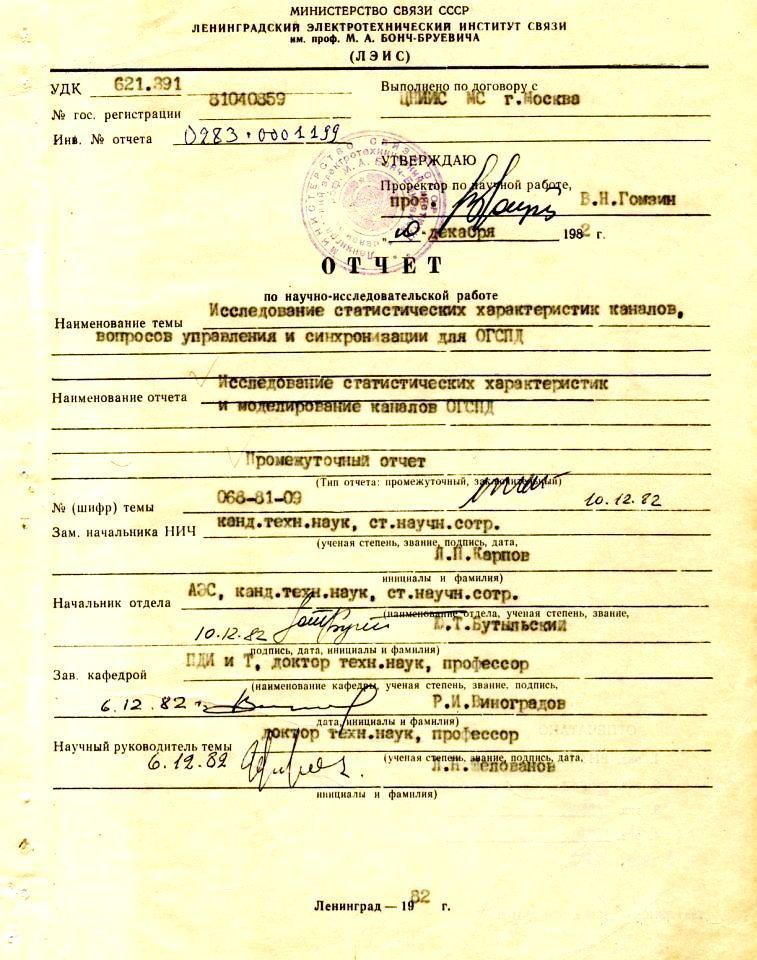 МИНИСТЕРСТВО СВЯЗИ СССР
ЛЕНИНГРАДСКИЙ ЭЛЕКТРОТЕХНИЧЕСКИЙ ИНСТИТУТ СВЯЗИ
им. проф. М. А. БОНЧ-БРУЕВИЧА
(ЛЭИС)
УДК 621.391
Выполнено по договору с
№ гос. регистрации 81040859
ЦНИИС МС г.Москва
Инв. № отчета 0283.0001199
УТВЕРЖДАЮ
Проректор по научной работе,
В.Н.Гомзин
10 декабря 1982 г.
ОТЧЕТ
по научно-исследовательской работе
Наименование темы Исследование статистических характеристик каналов,
вопросов управления и синхронизации для ОГСПД
Наименование отчета Исследование статистических характеристик
и моделирование каналов ОГСПД
Промежуточный отчет
(Тип отчета: промежуточный, заключительный)
№ (шифр) темы 068-81-09
10.12.82
Зам. начальника НИЧ канд.техн.наук, ст.научн.сотр.
(ученая степень, звание, подпись, дата,
Л.П.Карпов
инициалы и фамилия)
Начальник отдела АЭС, канд.техн.наук, ст.научн.сотр.
(наименование отдела, ученая степень, звание,
10.12.82 Ю.Т.Бутыльский
подпись, дата, инициалы и фамилия)
Зав. кафедрой ПДИ и Т, доктор техн.наук, профессор
(наименование кафедры, ученая степень, звание, подпись,
6.12.82 г. Р.И.Виноградов
дата, инициалы и фамилия)
доктор техн.наук, профессор
Научный руководитель темы
6.12.82
(ученая степень, звание, подпись, дата,
инициалы и фамилия)
Ленинград — 1982 г.